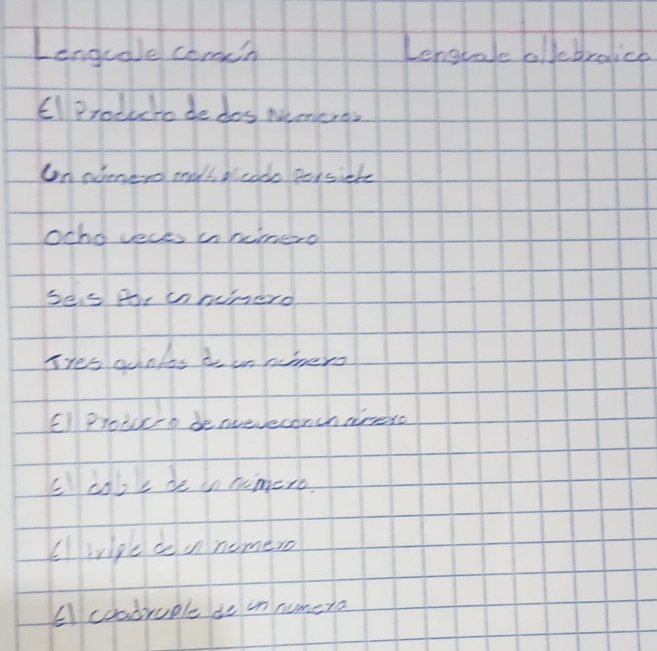 Lenguaje común Lenguaje aljebraico
El Producto de dos Números
Un número multiplicado por siete
Ocho veces un número
Seis Por un número
Tres quintos de un número
El Producto de nueve con un número
El doble de un número.
El triple de un numero
El cuadruple de un numero